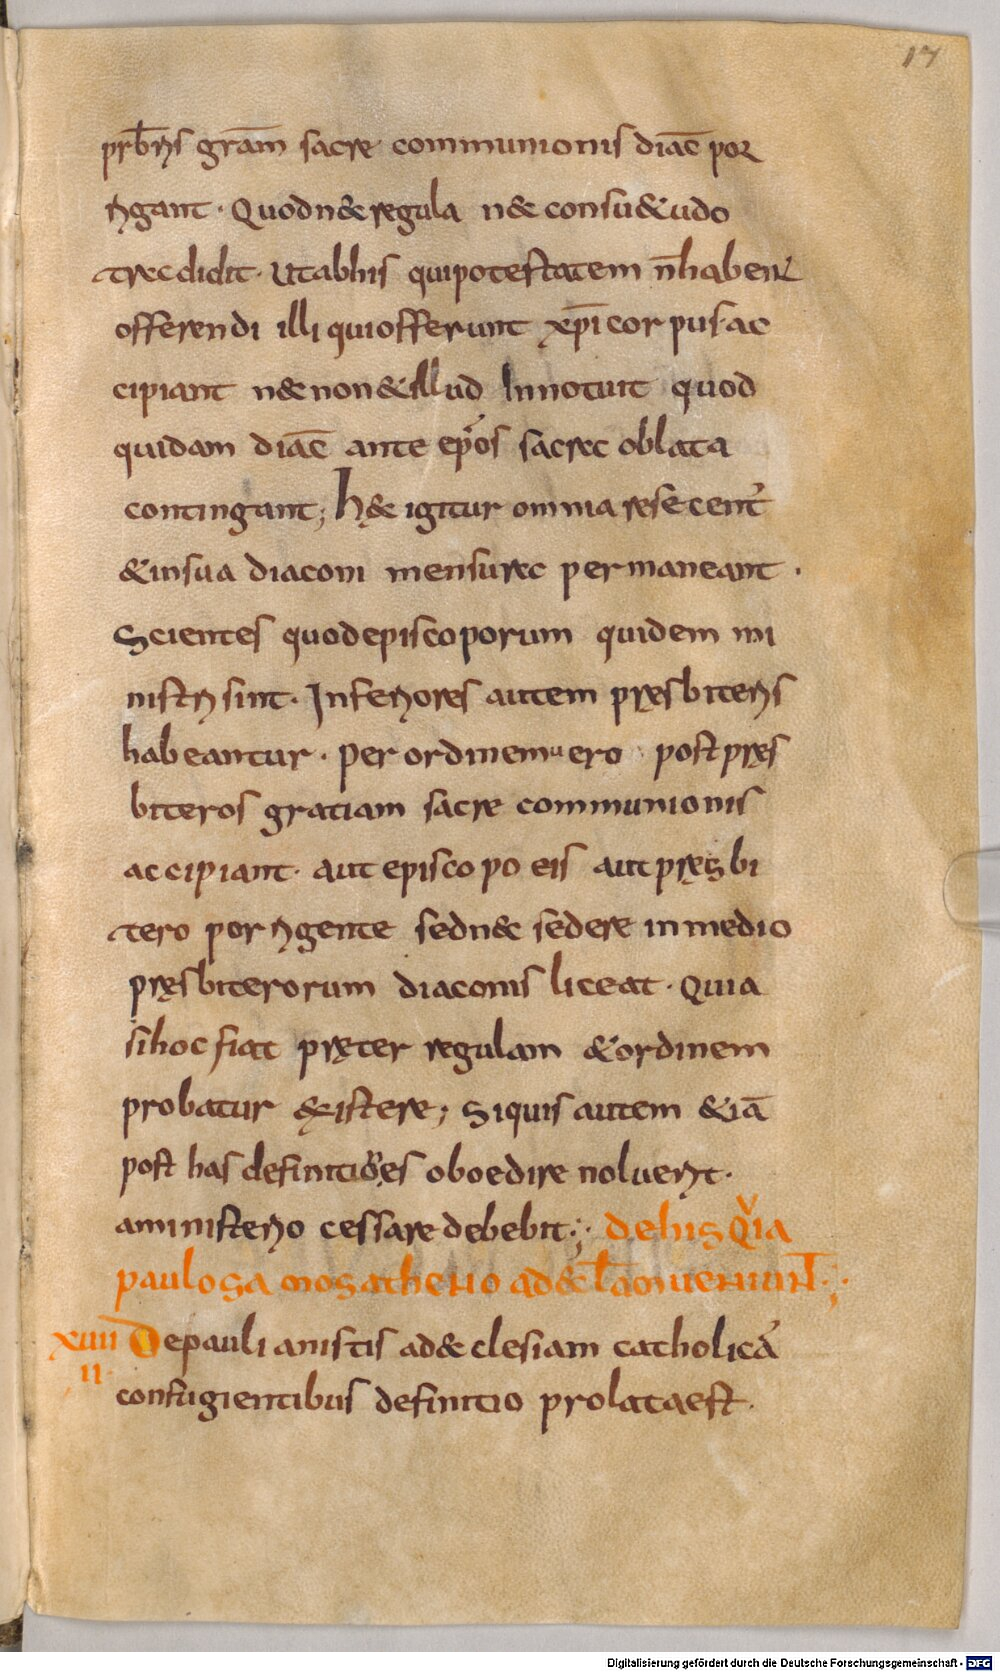 17
prb̅ris gra̅m sacre communionis diac̅ por
rigant · Quod n& regula n& consu&udo
tradidit · Ut ab his qui potestatem n̅ habent
offerendi illi qui offerunt xp̅i corpus ac
cipiant n& non & illud Innotuit quod
quidam diac̅ ante ep̅os sacra oblata
contingant; H& igitur omnia resecent̾
& in sua diaconi mensura permaneant ·
Scientes quod episcoporum quidem mi
nistri sint · Inferiores autem pręsbiteris
habeantur · per ordinem uero post pręs
biteros gratiam sacre communionis
accipiant · aut episcopo eis aut pręsbi
tero porrigente sed n& sedere in medio
pręsbiterorum diaconis liceat · Quia
si hoc fiat pręter regulam & ordinem
probatur &istere; Siquis autem &ia̅
post has definitio̅es oboedire noluerit ·
a ministerio cessare debebit; · de his q̾ia
paulo samosatheno ad &cl̅am ueniunt; ·
xuiii De paulianistis ad &clesiam catholica̅
ii confugientibus definitio prolata est ·
Digitalisierung gefördert durch die Deutsche Forschungsgemeinschaft - DFG